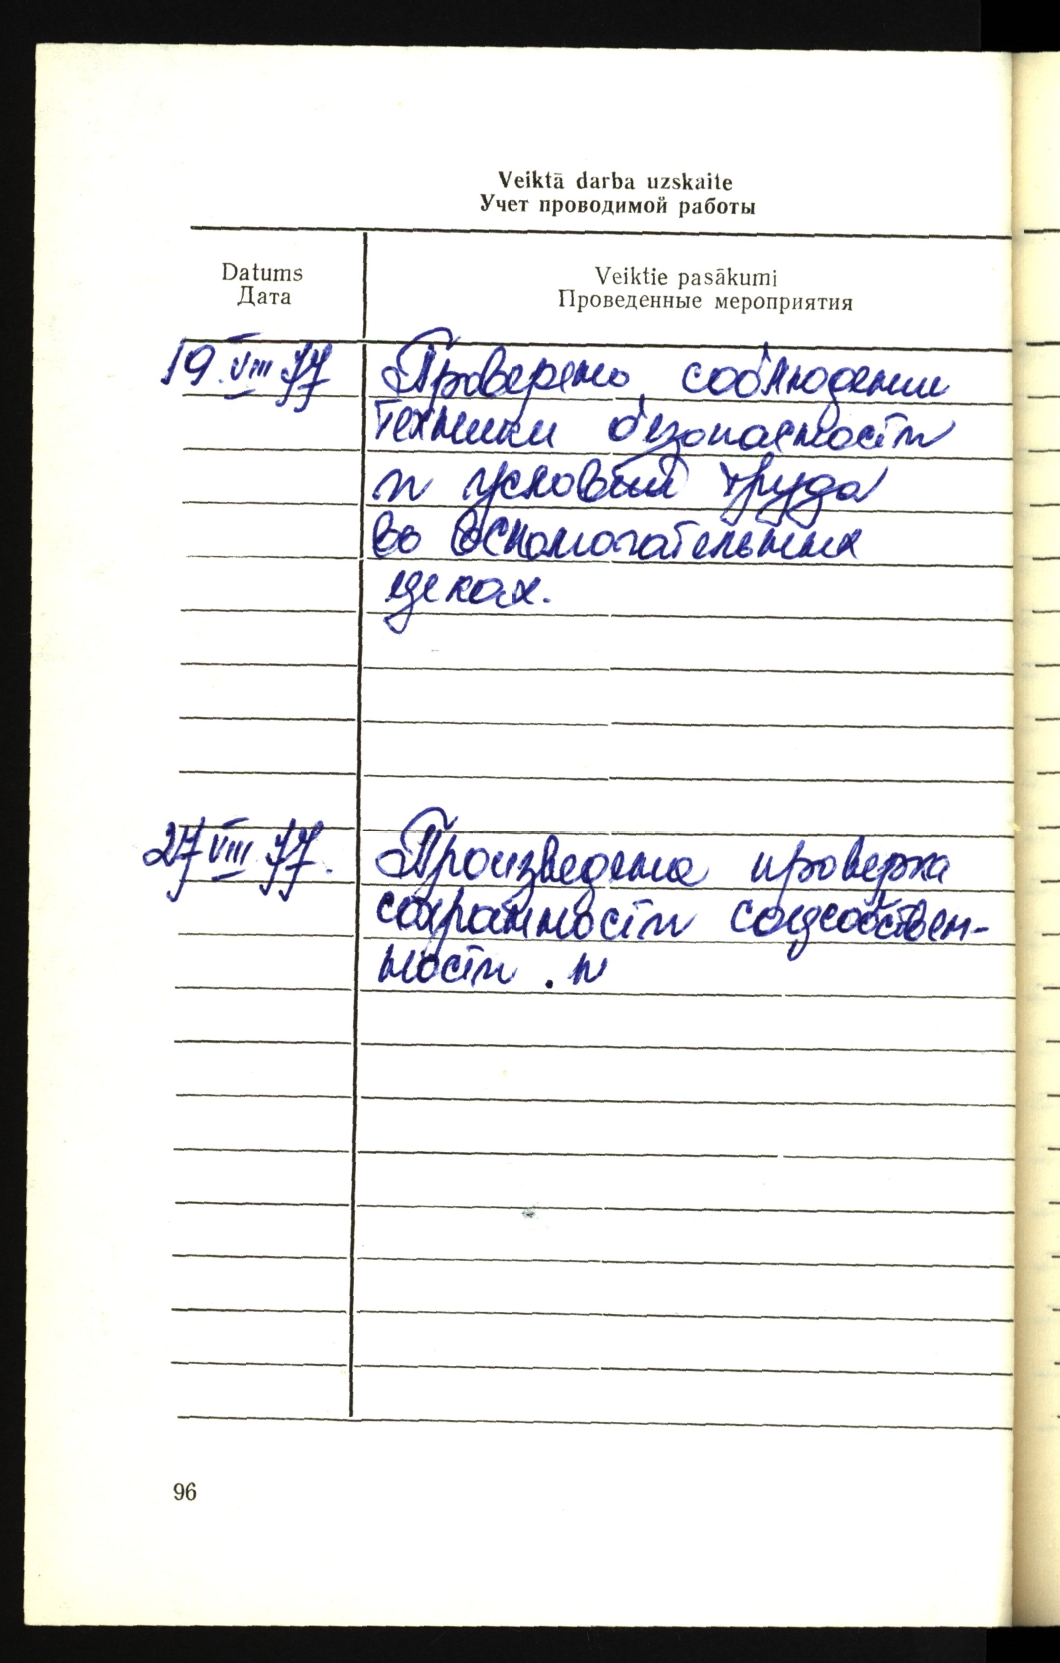 Veiktā darba uzskaite
Учет проводимой работы
Datums
Дата
Veiktie pasākumi
Проведенные мероприятия
19 VIII 77 Проверено соблюдении
техники безопасности
и условий труда
во вспомогательных
цеках.
27 VIII 77. Произведена проверка
сохранности соцсобствен-
ности . и
96